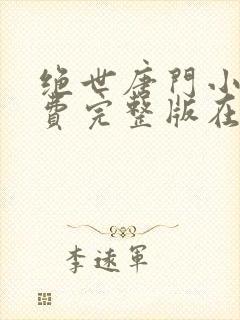 绝世唐門小
費完整版在
李遠軍